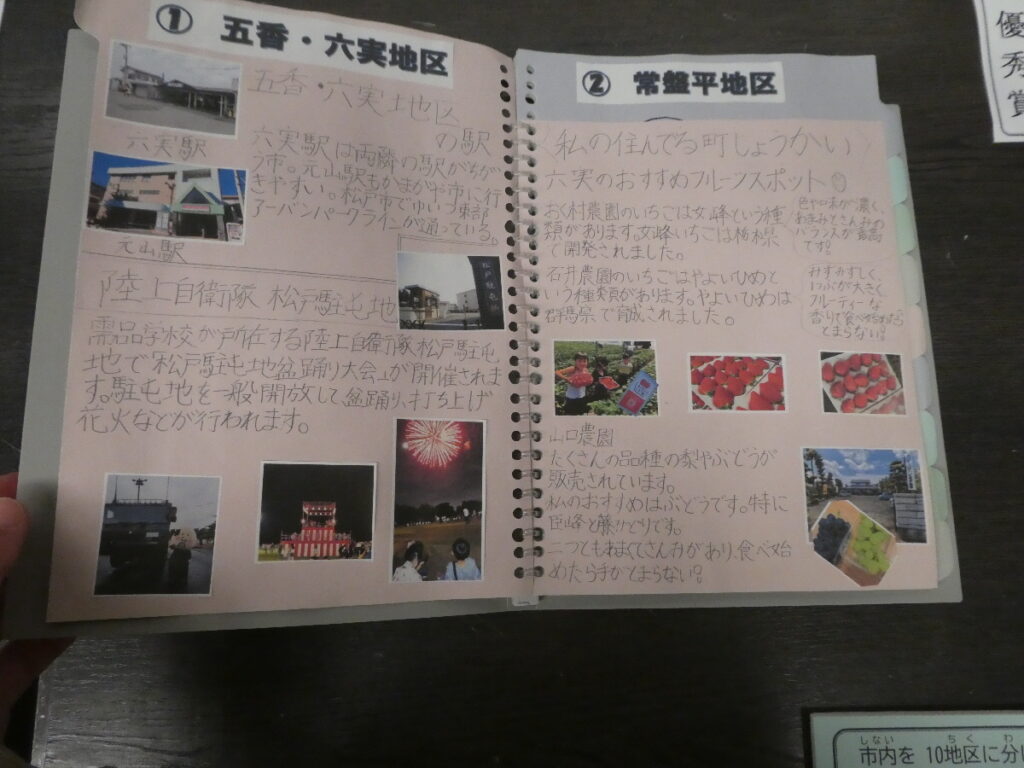 ① 五香・六実地区
五香・六実地区
の駅
六実駅
六実駅は両隣の駅がちが
う市。元山駅もかまがや市に行
きやすい。松戸市でゆいつ東部
アーバンパークラインが通っている。
元山駅
陸上自衛隊 松戸駐屯地
需品学校が所在する陸上自衛隊松戸駐屯
地で「松戸駐屯地盆踊り大会」が開催されま
す。駐屯地を一般開放して盆踊り、打ち上げ
花火などが行われます。
② 常盤平地区
〈私の住んでる町しょうかい〉
六実のおすすめフルーツスポット
おく村農園のいちごは女峰という種
類があります。女峰いちごは栃木県
で開発されました。
色や口味が濃く、
あまみとさんみの
バランスが最高
です!
石井農園のいちごはやよいひめと
いう種類があります。やよいひめは
群馬県で育成されました。
みずみずしく、
つぶが大きく
フルーティーな
香りで食べ始めたら
とまらない!
山口農園
たくさんの品種の梨やぶどうが
販売されています。
私のおすすめはぶどうです。特に
巨峰と藤みどりです。
二つともあまくてさんみがあり、食べ始
めたら手がとまらない!
優秀賞
しない ちく わ
市内を 10地区に分